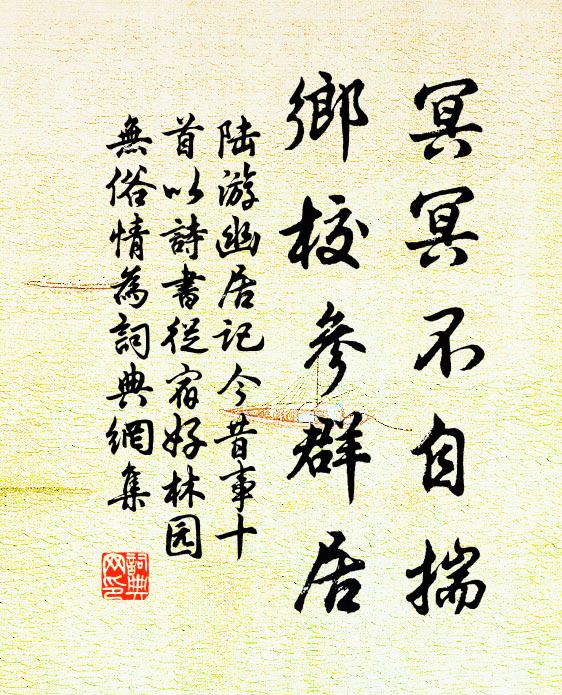 冥冥不自揣
鄉校參群居
陆游幽居记今昔事十
首以詩書從宿好林园
無俗情為詞典網集
詞典网印